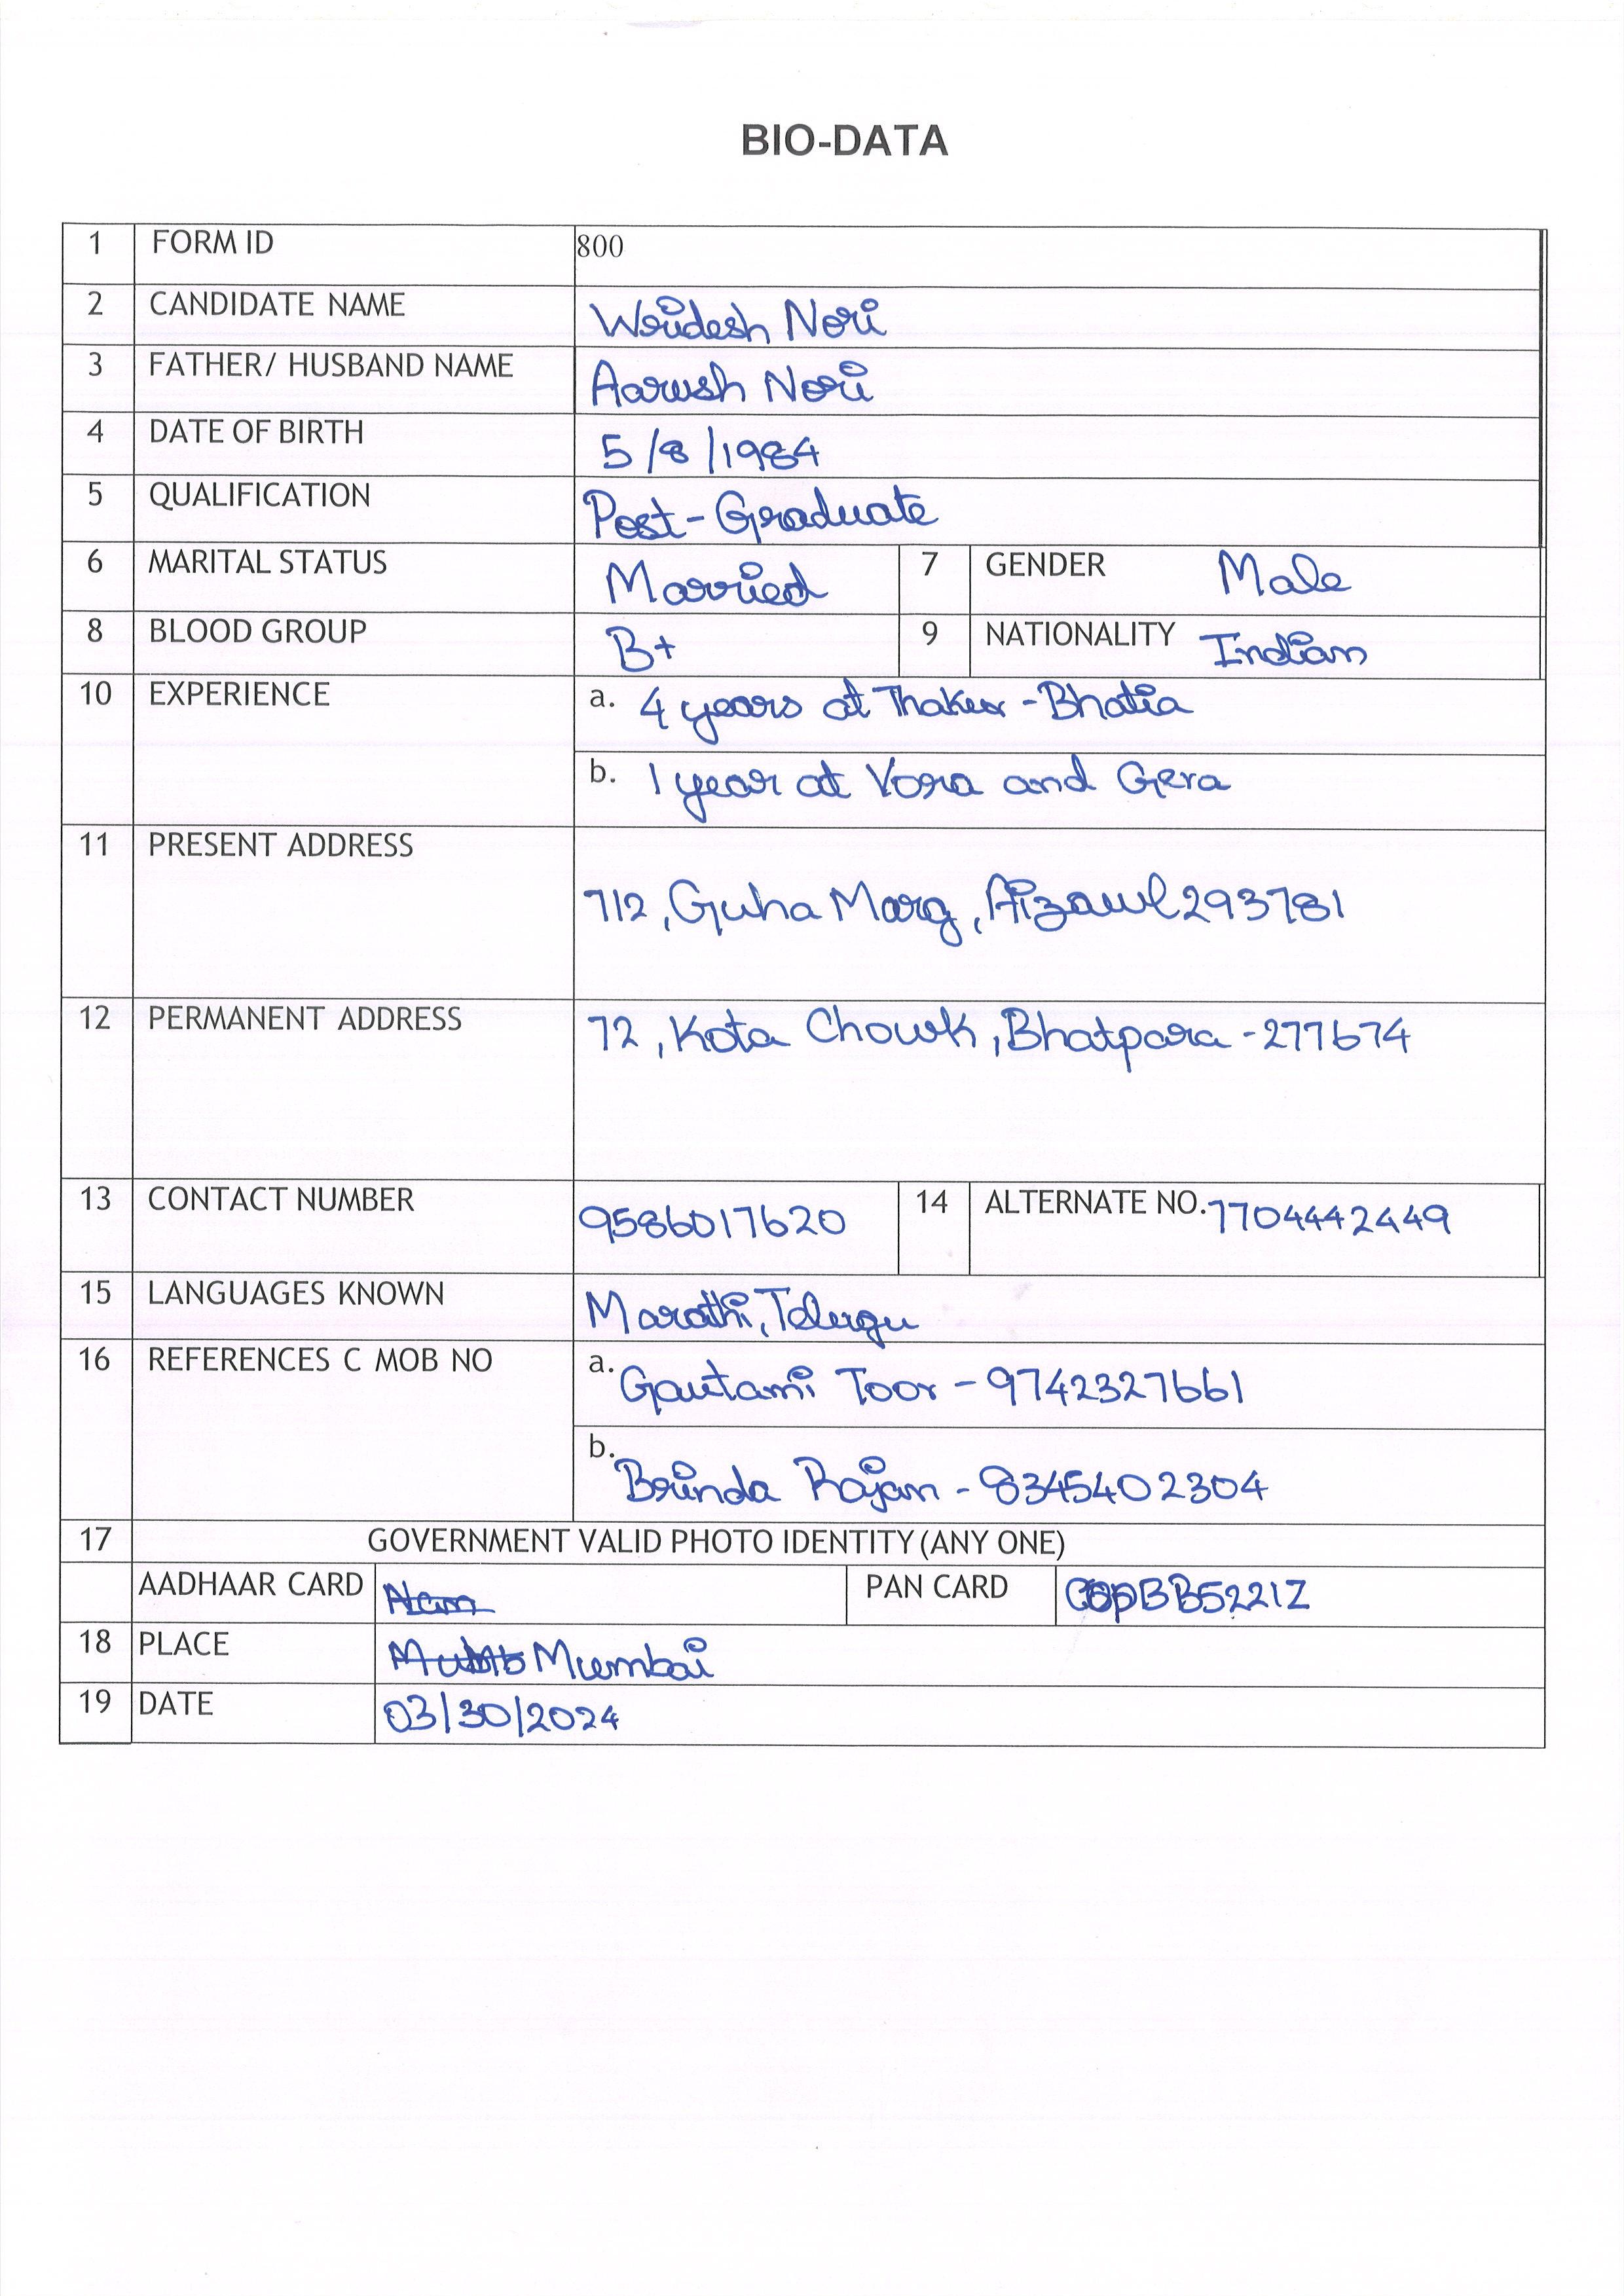 BIO-DATA
1 FORM ID 800
2 CANDIDATE NAME Wridesh Nori
3 FATHER/ HUSBAND NAME Aarush Nori
4 DATE OF BIRTH 5/8/1984
5 QUALIFICATION Post-Graduate
6 MARITAL STATUS Married 7 GENDER Male
8 BLOOD GROUP B+ 9 NATIONALITY Indian
10 EXPERIENCE a. 4 years at Thaker-Bhatia
b. 1 year at Vora and Gera
11 PRESENT ADDRESS
712, Guha Marg, Aizawl 293781
12 PERMANENT ADDRESS 72, Kota Chowk, Bhatpara - 277674
13 CONTACT NUMBER 9586017620 14 ALTERNATE NO. 7704442449
15 LANGUAGES KNOWN Marathi, Telugu
16 REFERENCES C MOB NO a. Gautami Toor - 9742327661
b. Brinda Rajan - 8345402304
17 GOVERNMENT VALID PHOTO IDENTITY (ANY ONE)
AADHAAR CARD PAN CARD
18 PLACE Mumbai
19 DATE 03/30/2024